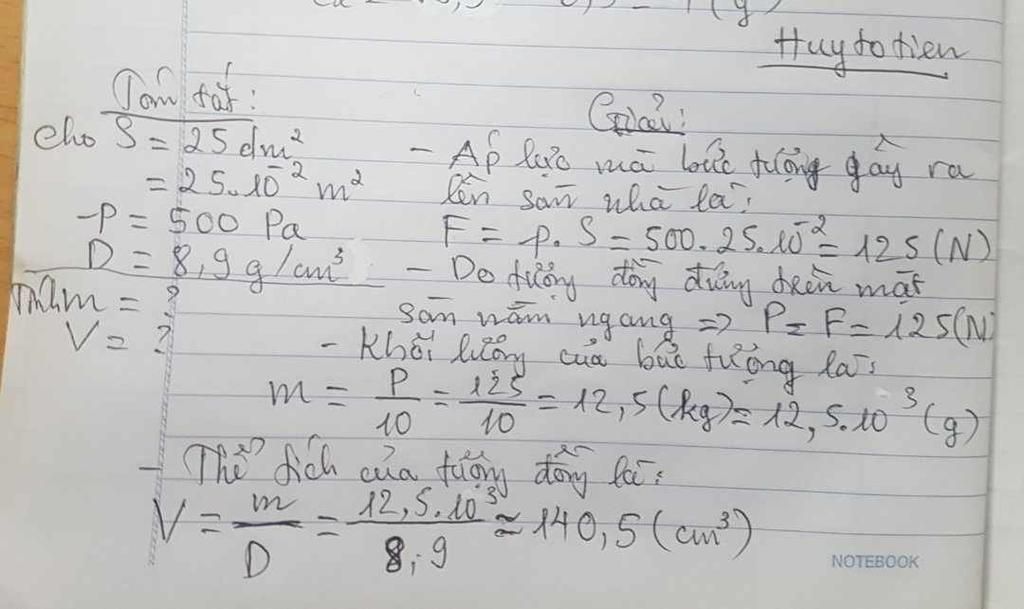 Huytotien
Tóm tắt:
cho S = 25 dm²
= 25.10⁻² m²
-P = 500 Pa
D = 8,9 g/cm³
m = ?
V = ?
Giải:
- Áp lực mà bức tượng gây ra
lên sàn nhà là:
F = p.S = 500.25.10⁻² = 125 (N)
- Do tượng đồng đứng trên mặt
sàn nằm ngang => P = F = 125(N)
- Khối lượng của bức tượng là:
m = P/10 = 125/10 = 12,5(kg) = 12,5.10³ (g)
- Thể tích của tượng đồng là:
V = m/D = 12,5.10³/8,9 ≈ 140,5 (cm³)
NOTEBOOK